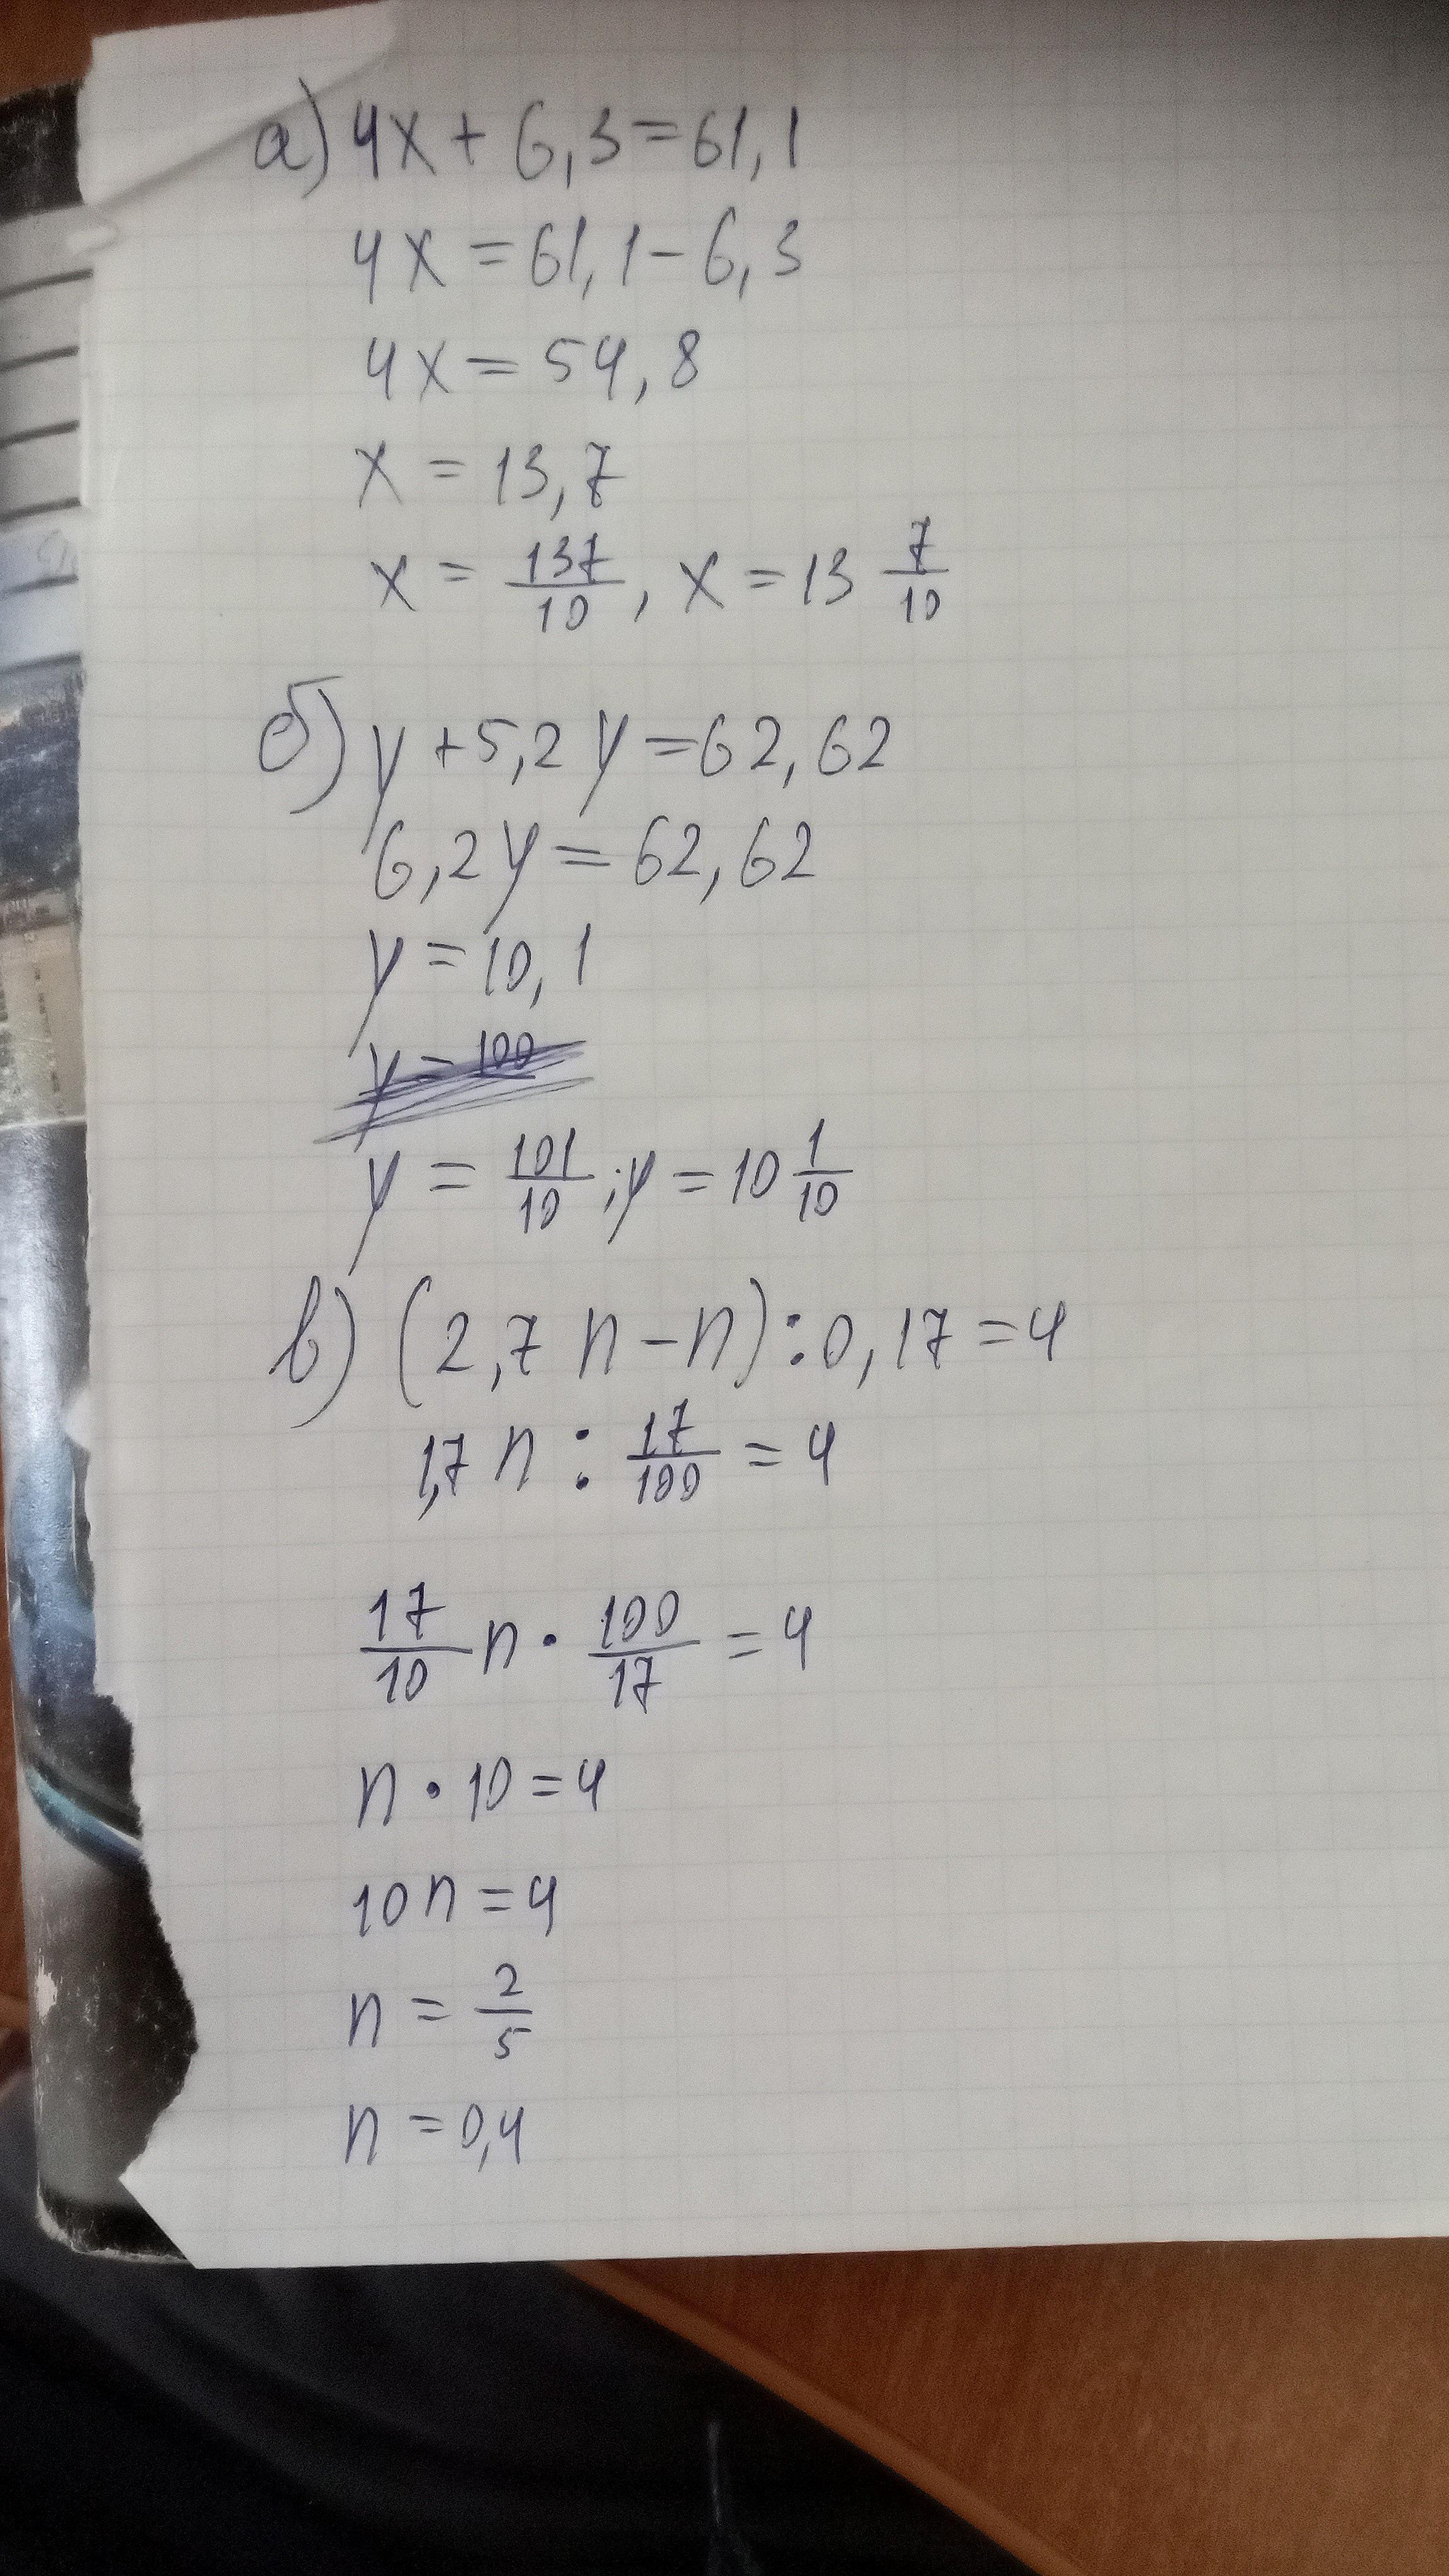 а) 4x + 6,3 = 61,1
4x = 61,1 - 6,3
4x = 54,8
x = 13,7
x = 137/10, x = 13 7/10
б) y + 5,2y = 62,62
6,2y = 62,62
y = 10,1
y = 100
y = 101/10; y = 10 1/10
в) (2,7n - n) : 0,17 = 4
1,7n : 17/100 = 4
17/10 n · 100/17 = 4
n · 10 = 4
10n = 4
n = 2/5
n = 0,4